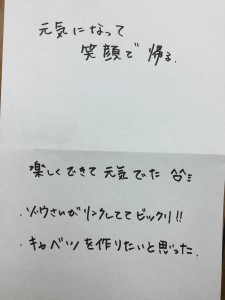 元気になって
笑顔で 帰る.
楽しくできて 元気でた ^^
・ゾウさいがリンクしててビックリ!!
・キャベツを作りたいと思った.